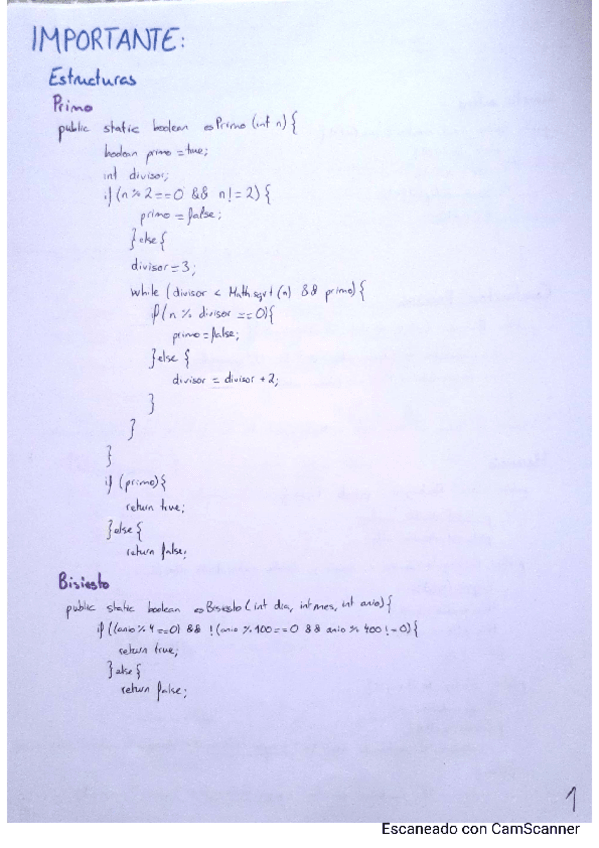 IMPORTANTE:
Estructuras
Primo
public static boolean esPrimo (int n) {
boolean primo = true;
int divisor;
if (n % 2 == 0 && n != 2) {
primo = false;
} else {
divisor = 3;
while (divisor < Math.sqrt (n) && primo) {
if (n % divisor == 0) {
primo = false;
} else {
divisor = divisor + 2;
}
}
}
if (primo) {
return true;
} else {
return false;
Bisiesto
public static boolean esBisiesto (int dia, int mes, int anio) {
if ((anio % 4 == 0) && !(anio % 100 == 0 && anio % 400 != 0) {
return true;
} else {
return false;
1
Escaneado con CamScanner